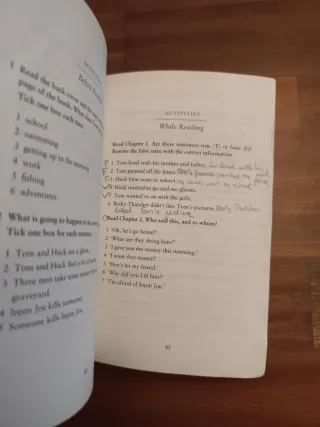 Before Reading
1 Read the back cover and the
page of the book. What does
Tick one box each time.
1 school
2 swimming
3 getting up in the morning
4 work
5 fishing
6 adventures
What is going to happen in the
Tick one box for each
1 Tom and Huck see a ghost.
2 Tom and Huck find a lot of
3 Three men take some
graveyard.
4 Injun Joe kills someone.
5 Someone kills Injun Joe.
ACTIVITIES
While Reading
Read Chapter 1. Are these sentences true (T) or false (F)?
Rewrite the false ones with the correct information.
F 1 Tom lived with his mother and father.
F 2 Tom painted all the fence.
F 3 Huck Finn went to school. never went to school
4 Huck wanted to go and see ghosts.
5 Tom wanted to work with the girls.
6 Becky Thatcher didn't like Tom's pictures. Becky Thatcher
liked Tom's picture
Read Chapter 2. Who said this, and to whom?
1 'Oh, let's go home!'
2 'What are they doing here?'
3 'I gave you the money this morning.'
4 'I want that money!'
5 'Don't hit my friend.'
6 'Why did you kill him?'
7 'I'm afraid of Injun Joe.'